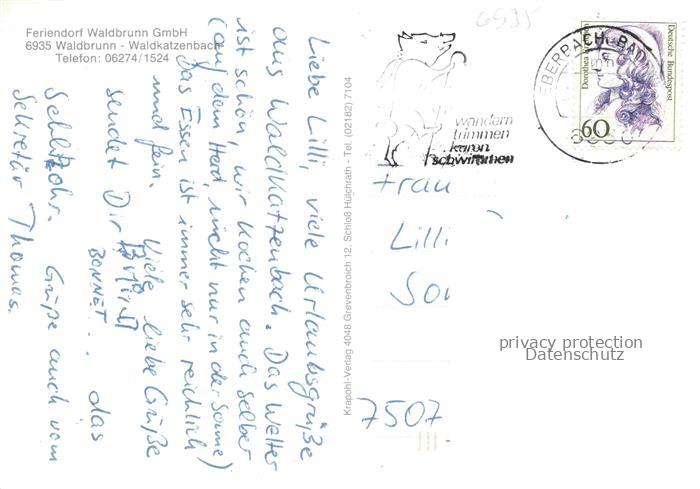 Feriendorf Waldbrunn GmbH
6935 Waldbrunn - Waldkatzenbach
Telefon: 06274/1524
Liebe Lilli, viele Urlaubsgrüße
aus Waldkatzenbach. Das Wetter
ist schön, wir kochen auch selber
(auf dem Herd, nicht nur in der Sonne)
Das Essen ist immer sehr reichlich
und fein. Viele liebe Grüße
sendet Dir
BONNET . . das
Schlitzohr. Grüße auch vom
Sekretär Thomas.
Krapohl-Verlag 4048 Grevenbroich 12, Schloß Hülchrath - Tel. (02182) 7104
6935
wandern
trimmen
kuren
schwimmen
EBERBACH, BAD
Deutsche Bundespost
60
Frau
Lilli
7507
privacy protection
Datenschutz